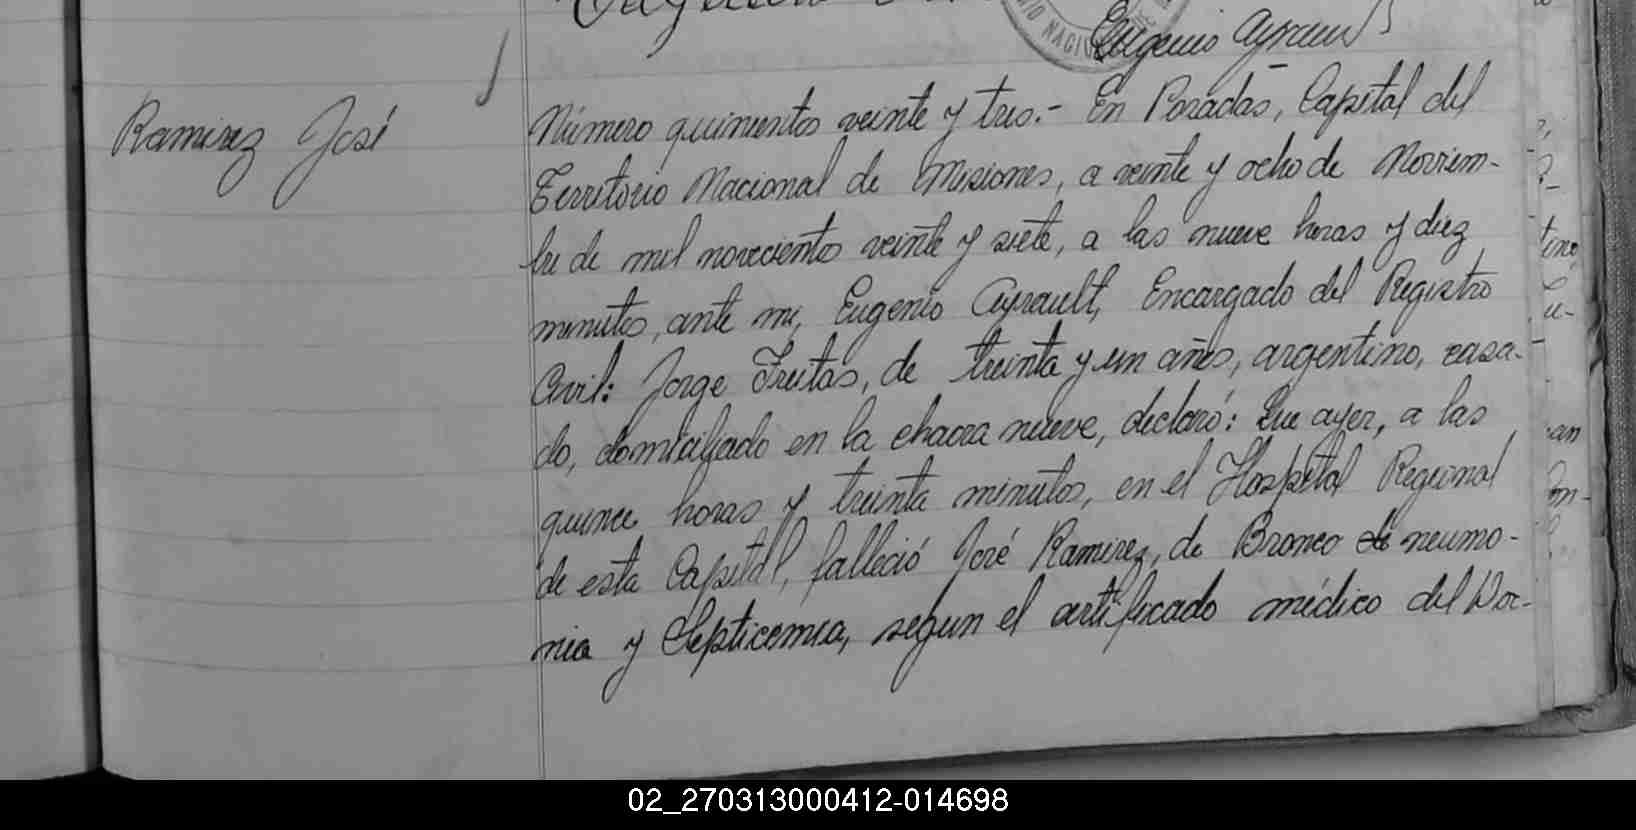 Eugenio Ayrault
NACIO
Ramirez José
Número quinientos veinte y tres.- En Posadas, Capital del
Territorio Nacional de Misiones, a veinte y ocho de Noviem-
bre de mil novecientos veinte y siete, a las nueve horas y diez
minutos, ante mi, Eugenio Ayrault, Encargado del Registro
Civil: Jorge Freitas, de treinta y un años, argentino, casa-
do, domiciliado en la chacra nueve, declaró: Que ayer, a las
quince horas y treinta minutos, en el Hospital Regional
de esta Capital, falleció José Ramirez, de Bronco neumo-
nia y Septicemia, segun el certificado médico del Doc-
02_270313000412-014698